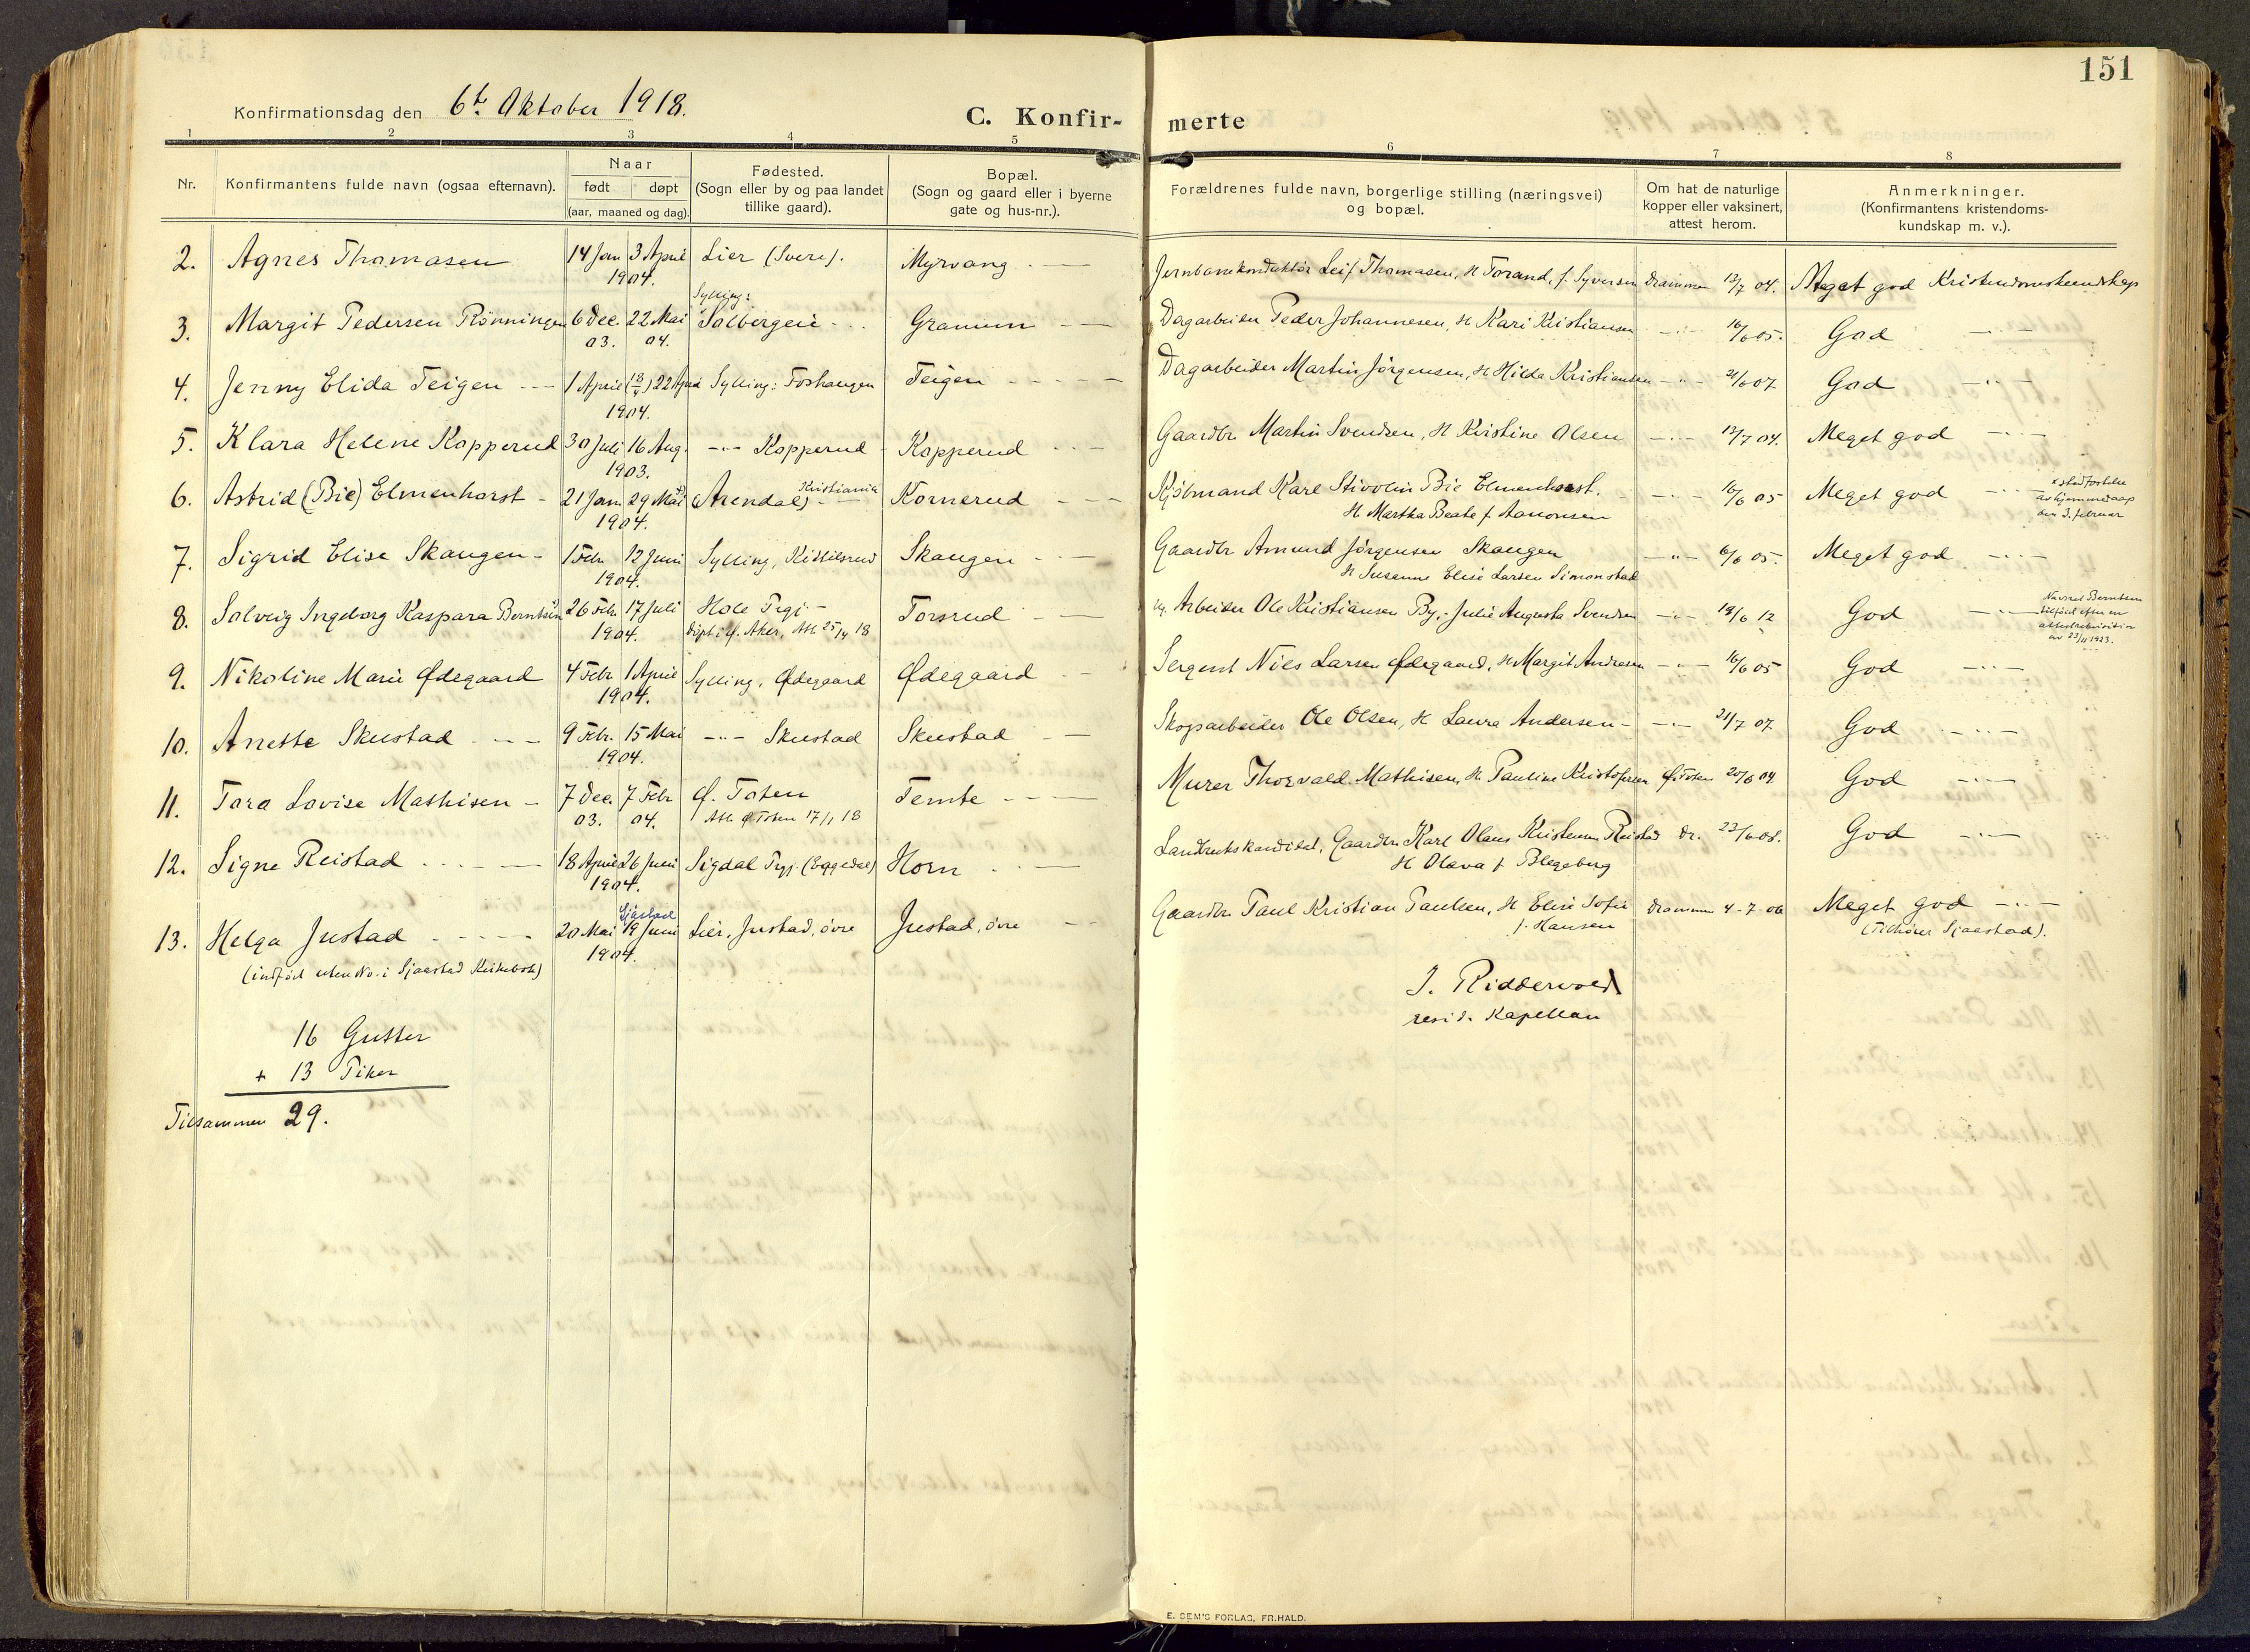 151
Konfirmationsdag den 6te Oktober 1918.
C. Konfir- merte
1 2 3 4 5 6 7 8
Nr.
Konfirmantens fulde navn (ogsaa efternavn).
Naar
født døpt
(aar, maaned og dag).
Fødested.
(Sogn eller by og paa landet
tillike gaard).
Bopæl.
(Sogn og gaard eller i byerne
gate og hus-nr.).
Forældrenes fulde navn, borgerlige stilling (næringsvei)
og bopæl.
Om hat de naturlige
kopper eller vaksinert,
attest herom.
Anmerkninger.
(Konfirmantens kristendoms-
kundskap m. v.).
2. Agnes Thomasen 14 Jan 3 April Lier (Svere). Myrvang Jernbanekonduktør Leif Thomasen, H Torand, f. Syversen Drammen 13/7 04. Meget god Kristendomskundskap
1904.
Sylling:
3. Margit Pedersen Rönningen 6 Dec. 22 Mai Solbergeie Granum Dagarbeider Peder Johannesen, H Kari Kristiansen -"- 16/6 05. God -"-
03. 04.
4. Jenny Elida Teigen 1 April (18/4) 22 April Sylling: Foshaugen Teigen Dagarbeider Martin Jörgensen, H Hilda Kristiansen -"- 21/6 07 God -"-
1904.
5. Klara Helene Kopperud 30 Juli 16 Aug. -"- Kopperud Kopperud Gaardbr. Martin Svendsen, H Kristine Olsen -"- 13/7 04. Meget god -"-
1903.
6. Astrid (Bie) Elmenhorst 21 Jan 29 Mai x) (Arendal) Kristiania Kornerud Kjöbmand Karl Bie Elmenhorst. -"- 16/6 05 Meget god -"- x stadfæstelse
av hjemmedaap
den 3. februar
1904. H Martha Beate f. Aanonsen
7. Sigrid Elise Skaugen 1 Febr. 12 Juni Sylling, Kittilsrud Skaugen Gaardbr Amund Jörgensen Skaugen -"- 6/6 05. Meget god -"-
1904. H Susanne Elise Larsen Simonstad
8. Solveig Ingeborg Kaspara Berntsen 26 Febr. 17 Juli Hole Prgj. Torsrud Arbeider Ole Kristiansen By, Julie Augusta Svendsen -"- 19/6 12 God -"- Navnet Berntsen
tilföiet efter en
attestrekvisition
av 23/11 1923.
1904. döpt i Ø. Aker, Att 25/4 18
9. Nikoline Marie Ødegaard 4 Febr. 1 April Sylling, Ødegaard Ødegaard Sergent Nils Larsen Ødegaard, H Margit Andresen -"- 16/6 05 God -"-
1904.
10. Anette Skustad 9 Febr. 15 Mai -"- Skustad Skustad Skogsarbeider Ole Olsen, H Laura Andersen -"- 21/7 07. God -"-
1904.
11. Tora Lovise Mathisen 7 Dec. 7 Febr Ø. Toten Temte Murer Thorvald Mathisen, H. Pauline Kristofersen Ø. Toten 20/6 04 God -"-
03. 04. Att. Ø Toten 17/1 18
12. Signe Reistad 18 April 26 Juni Sigdal Prgj. (Eggedal) Horn Landbrukskandidat, Gaardbr. Karl Olaus Kristensen Reistad Dr. 23/6 08. God -"-
1904. H Olava f Blegeberg
Sjåstad
13. Helga Justad 20 Mai 19 Juni Lier, Justad, övre Justad, övre Gaardbr. Paul Kristian Paulsen, H Elise Sofie Drammen 4-7-06 Meget god -"-
1904. f. Hansen (Tilhører Sjaastad).
(indført uten No. i Sjaastad Kirkebok)
J. Riddervold
resid. Kapellan
16 Gutter
+ 13 Piker
Tilsammen 29.
E. SEM'S FORLAG, FR.HALD.